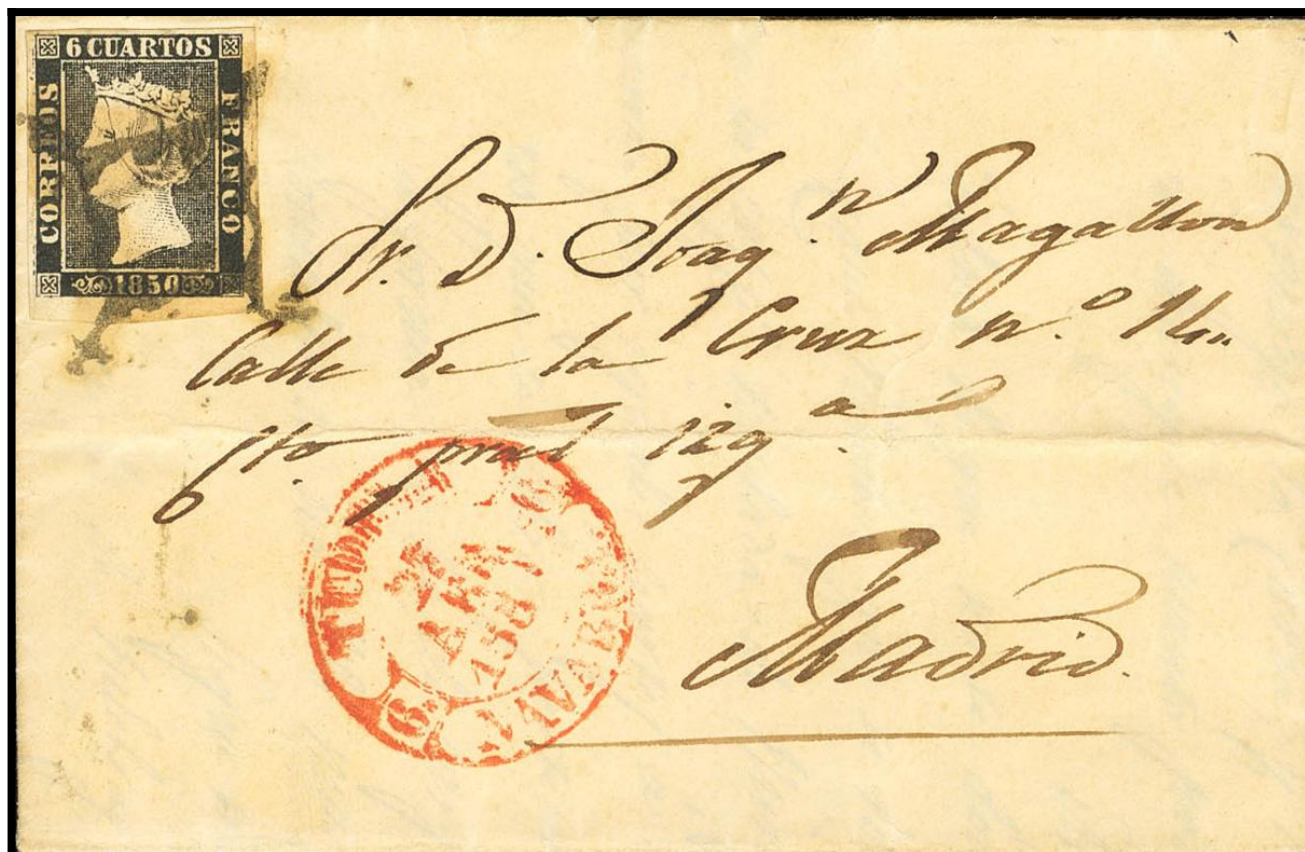 6 CUARTOS
CORREOS
FRANCO
1850
Sr. D. Joaq.n Magallon
Calle de la Cruz n.o 14
pral izq.a
Madrid.
TUDELA
NAVARRA